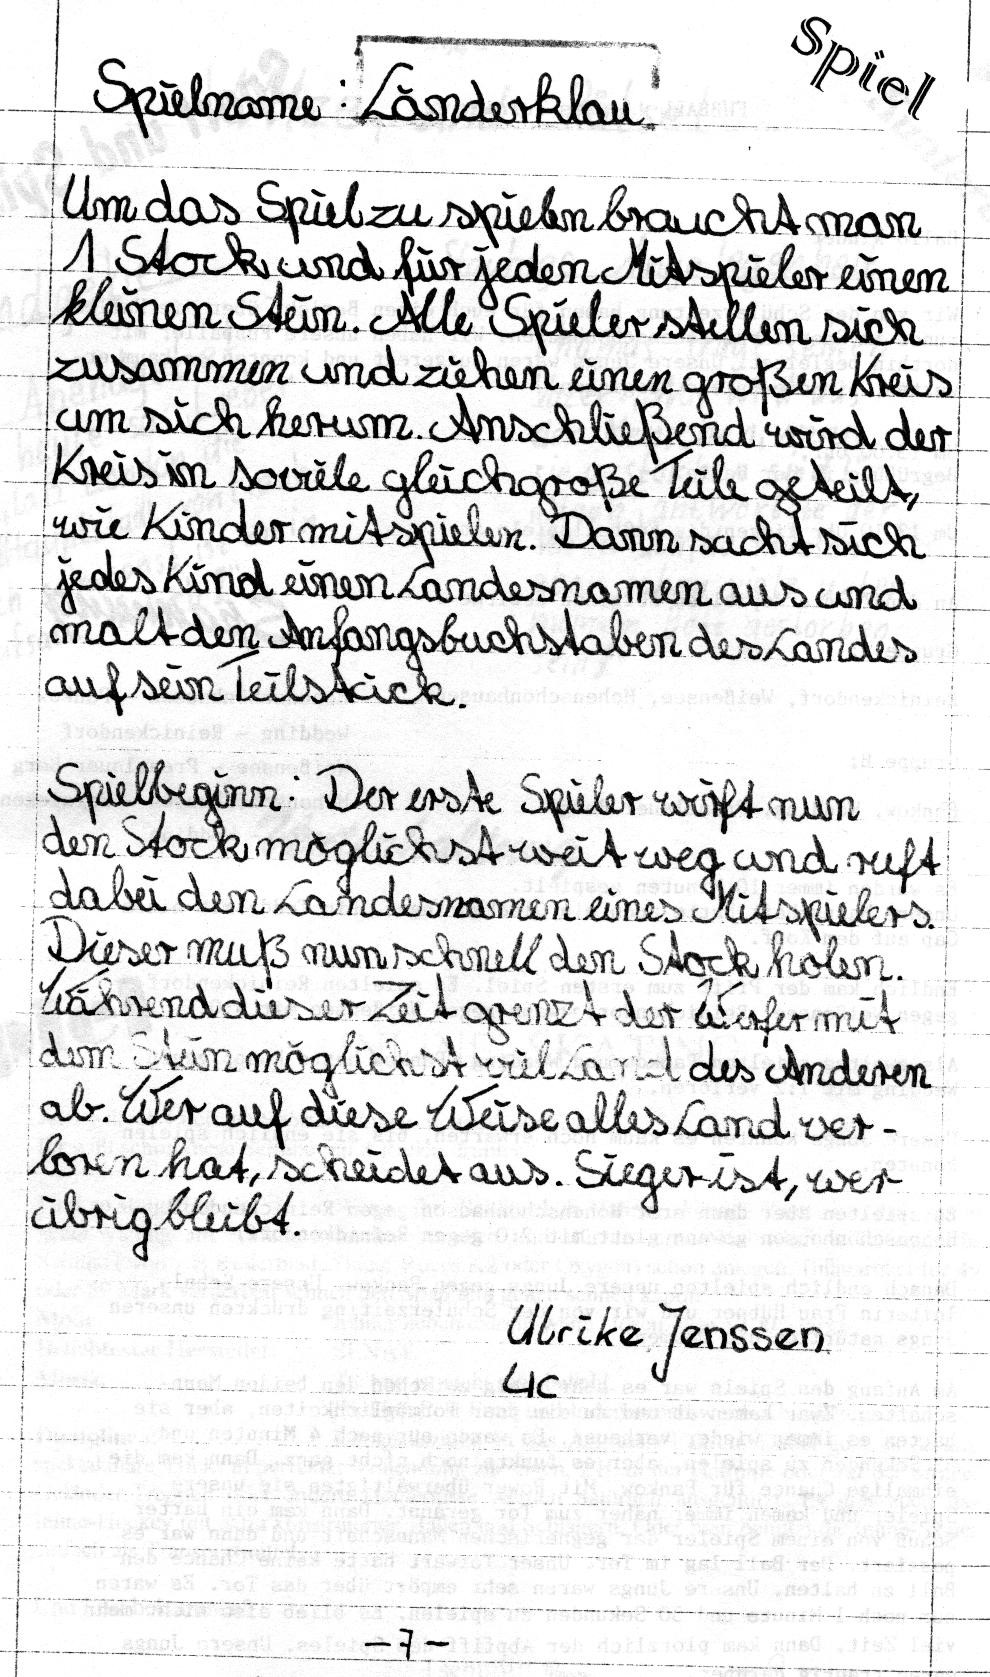 Spiel
Spielname: Länderklau
Um das Spiel zu spielen braucht man
1 Stock und für jeden Mitspieler einen
kleinen Stein. Alle Spieler stellen sich
zusammen und ziehen einen großen Kreis
um sich herum. Anschließend wird der
Kreis in soviele gleichgroße Teile geteilt,
wie Kinder mitspielen. Dann sucht sich
jedes Kind einen Landesnamen aus und
malt den Anfangsbuchstaben des Landes
auf sein Teilstück.
Spielbeginn. Der erste Spieler wirft nun
den Stock möglichst weit weg und ruft
dabei den Landesnamen eines Mitspielers.
Dieser muß nun schnell den Stock holen.
Während dieser Zeit grenzt der Werfer mit
dem Stein möglichst viel Land des Anderen
ab. Wer auf diese Weise alles Land ver-
loren hat, scheidet aus. Sieger ist, wer
übrig bleibt.
Ulrike Jenssen
4c
- 7 -